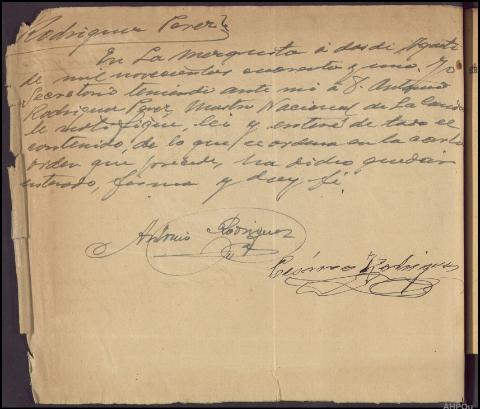 Rodriguez Perez
En La Merquita á dos de Agosto
de mil novecientos cuarenta y uno. Yo
Secretario teniendo ante mi á D. Antonio
Rodriguez Perez Maestro Nacional de La
le notifiqué, lei y enteré de todo el
contenido, de lo que se ordena en la carta
orden que precede, ha dicho quedar
enterado, firma y doy fé.
Antonio Rodriguez
Rodriguez
AHPOu